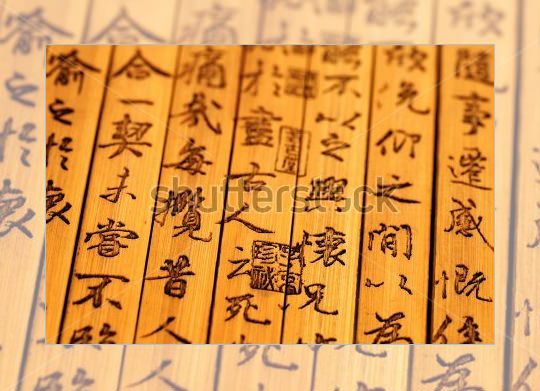 隨事遷感慨係
欣俛仰之間以為
能不以之興懷況
於盡古人云死
痛哉每攬昔人
合一契未嘗不臨
喻之於懷
shutterstock